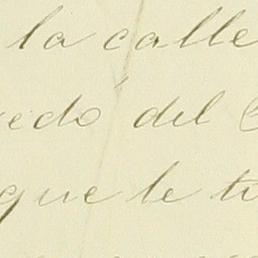 la calle
edo del
que le